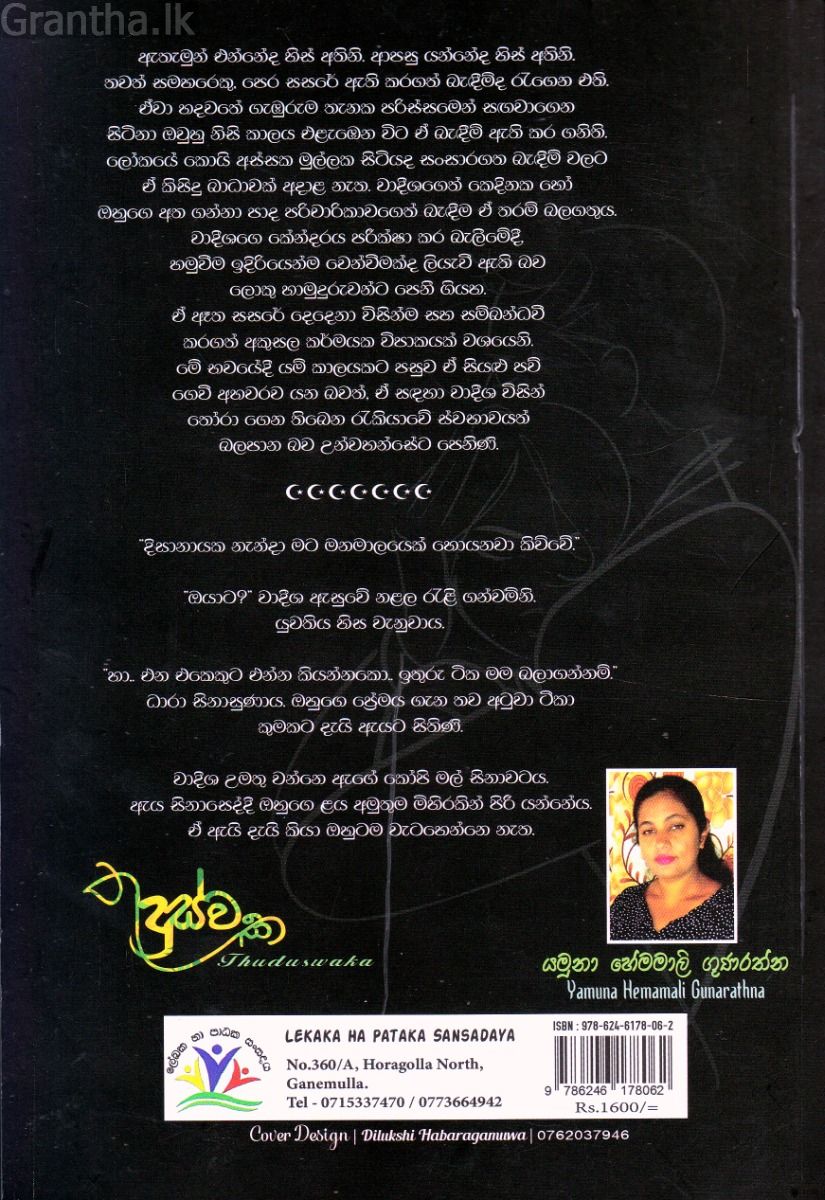 Grantha.lk
ඇතැමුන් එන්නේද හිස් අතිනි. ආපසු යන්නේද හිස් අතිනි.
තවත් සමහරෙකු, පෙර සසරේ ඇති කරගත් බැඳීම්ද රැගෙන එති.
ඒවා හදවතේ ගැඹුරුම තැනක පරිස්සමෙන් සඟවාගෙන
සිටිනා ඔවුහු නිසි කාලය එළැඹෙන විට ඒ බැඳීම් ඇති කර ගනිති.
ලෝකයේ කොයි අස්සක මුල්ලක සිටියද සංසාරගත බැඳීම් වලට
ඒ කිසිදු බාධාවක් අදාළ නැත. වාදීශගෙත් කෙදිනක හෝ
ඔහුගෙ අත ගන්නා පාද පරිචාරිකාවගෙත් බැඳීම ඒ තරම් බලගතුය.
වාදීශගෙ කේන්දරය පරීක්ෂා කර බැලීමේදී,
හමුවීම ඉදිරියෙන්ම වෙන්වීමක්ද ලියැවී ඇති බව
ලොකු හාමුදුරුවන්ට පෙනී ගියහ.
ඒ ඈත සසරේ දෙදෙනා විසින්ම සහ සම්බන්ධවී
කරගත් අකුසල කර්මයක විපාකයක් වශයෙනි.
මේ භවයේදී යම් කාලයකට පසුව ඒ සියළු පව්
ගෙවී අහවරව යන බවත්, ඒ සඳහා වාදීශ විසින්
තෝරා ගෙන තිබෙන රැකියාවේ ස්වභාවයත්
බලපාන බව උන්වහන්සේට පෙනිණි.
"දිසානායක නැන්දා මට මනමාලයෙක් හොයනවා කිව්වේ."
"ඔයාට?" වාදීශ ඇසුවේ නළල රැළි ගන්වමිනි.
යුවතිය හිස වැනුවාය.
"හා.. එන එකෙකුට එන්න කියන්නකො.. ඉතුරු ටික මම බලාගන්නම්."
ධාරා සිනාසුණාය. ඔහුගෙ ප්‍රේමය ගැන තව අටුවා ටීකා
කුමකට දැයි ඇයට සිතිණි.
වාදීශ උමතු වන්නෙ ඇගේ කෝපි මල් සිනාවටය.
ඇය සිනාසෙද්දි ඔහුගෙ ළය අමුතුම මිහිරකින් පිරී යන්නේය.
ඒ ඇයි දැයි කියා ඔහුටම වැටහෙන්නෙ නැත.
තුදුස්වක
Thuduswaka
යමුනා හේමමාලි ගුණරත්න
Yamuna Hemamali Gunarathna
ලේඛක හා පාඨක සංසදය
LEKAKA HA PATAKA SANSADAYA
No.360/A, Horagolla North,
Ganemulla.
Tel - 0715337470 / 0773664942
ISBN : 978-624-6178-06-2
9 786246 178062
Rs.1600/=
Cover Design | Dilukshi Habaragamuwa | 0762037946